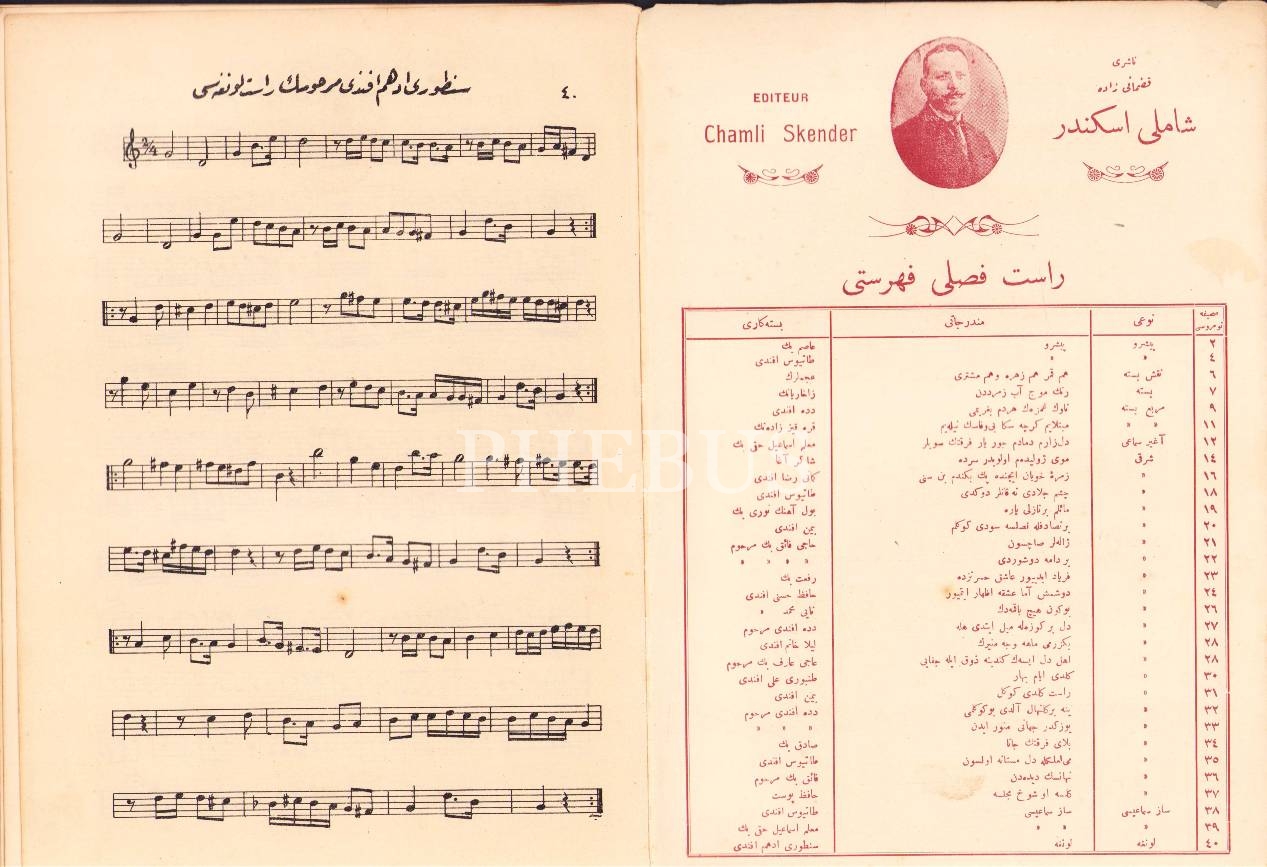 ٤٠
سنطوری ادهم افندی مرحومك راست لونغه سی
2/4
EDITEUR
Chamli Skender
ناشری
قضمانی زاده
شاملی اسکندر
راست فصلی فهرستی
صحیفه نومروسی نوعی مندرجاتی بسته‌کاری
٢ پیشرو پیشرو عاصم بك
٤ " " طاتیوس افندی
٦ نقش بسته هم قمر هم زهره وهم مشتری
٧ بسته رنك موج آب زمرددن زاخاریانك
٩ مربع بسته ناوك غمزه‌ك هردم بغریمی دده افندی
١١ " " مبتلایم کرچه سکا بی‌وفاسك نیله‌یم
١٢ آغیر سماعی دلزارم دمادم جور یار فرقتك سویلر معلم اسماعیل حقی بك
١٤ شرقی موی ژولیده‌م اولوبدر سرده شاکر آغا
١٦ " زمرهٔ خوبان ایچنده پك بكندم بن سنی کمانی رضا افندی
١٨ " چشم جلادی نه قانلر دوکدی طاتیوس افندی
١٩ " مائلم بر نازلی یاره بول آهنك نوری بك
٢٠ " بر تصادفله فصلسه سودی کوکلم یمین افندی
٢١ " ژاله‌لر صاچسون حاجی فائق بك مرحوم
٢٢ " بر دامه دوشوردی " " " "
٢٣ " فریاد ایدییور عاشق حسرتزده رفعت بك
٢٤ " دوشمش آما عشقه اظهار ایتمیور حافظ حسنی افندی
٢٦ " بوکون هیچ باقمه‌دك نایی محمد "
٢٧ " دل بر کوزه‌له میل ایتدی هله دده افندی مرحوم
٢٨ " بکزرمی ماهه وجه منیرك لیلا خانم افندی
٢٨ " اهل دل ایسه‌ك کندینه ذوق ایله جفایی حاجی عارف بك مرحوم
٣٠ " کلدی ایام بهار طنبوری علی افندی
٣١ " راست کلدی کوکل یمین افندی
٣٢ " ینه بر کلنهال آلدی بو کوکلمی دده افندی مرحوم
٣٣ " یوزکدر جهانی منور ایدن " " "
٣٤ " بلای فرقتك جانا صادق بك
٣٥ " می املکله دل مستانه اولسون طاتیوس افندی
٣٦ " نهانسك دیده‌دن فائق بك مرحوم
٣٧ " کلسه او شوخ مجلسه حافظ یوست
٣٨ ساز سماعیسی ساز سماعیسی طاتیوس افندی
٣٩ " " " " معلم اسماعیل حقی بك
٤٠ لونغه لونغه سنطوری ادهم افندی
PHEBU